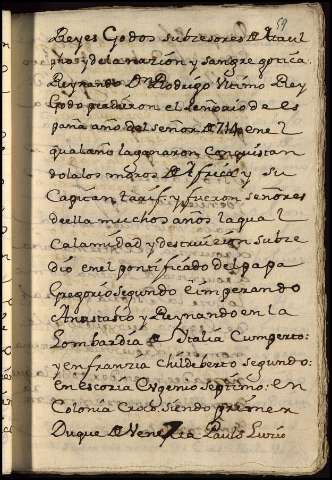 59
Reyes Godos subçesores de Ataul
pho y de la nazion y sangre gotica.
Reynando Dn Rodrigo Vltimo Rey
Godo perdieron el señorio de es
paña año del señor de 714 en el
qual año la ganaron Conquistan
dola los moros de Africa y su
Capitan tarif. y fueron señores
de ella muchos años la qual
Calamidad y destruizion subçe
dio en el pontificado del papa
Gregorio segundo. Ymperando
Anastasio y Reynando en la
Lombardia de Italia Cumperto:
y en franzia childeberto segundo:
En escoçia Evgenio septimo. en
Colonia Croco. siendo primer
Duque de Venezia Paulo Luzio